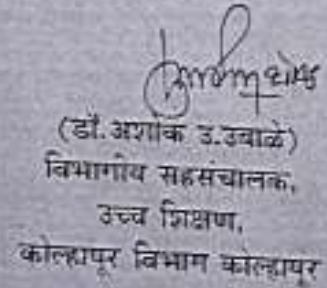 (डॉ. अशोक उ. उबाळे)
विभागीय सहसंचालक,
उच्च शिक्षण,
कोल्हापूर विभाग कोल्हापूर